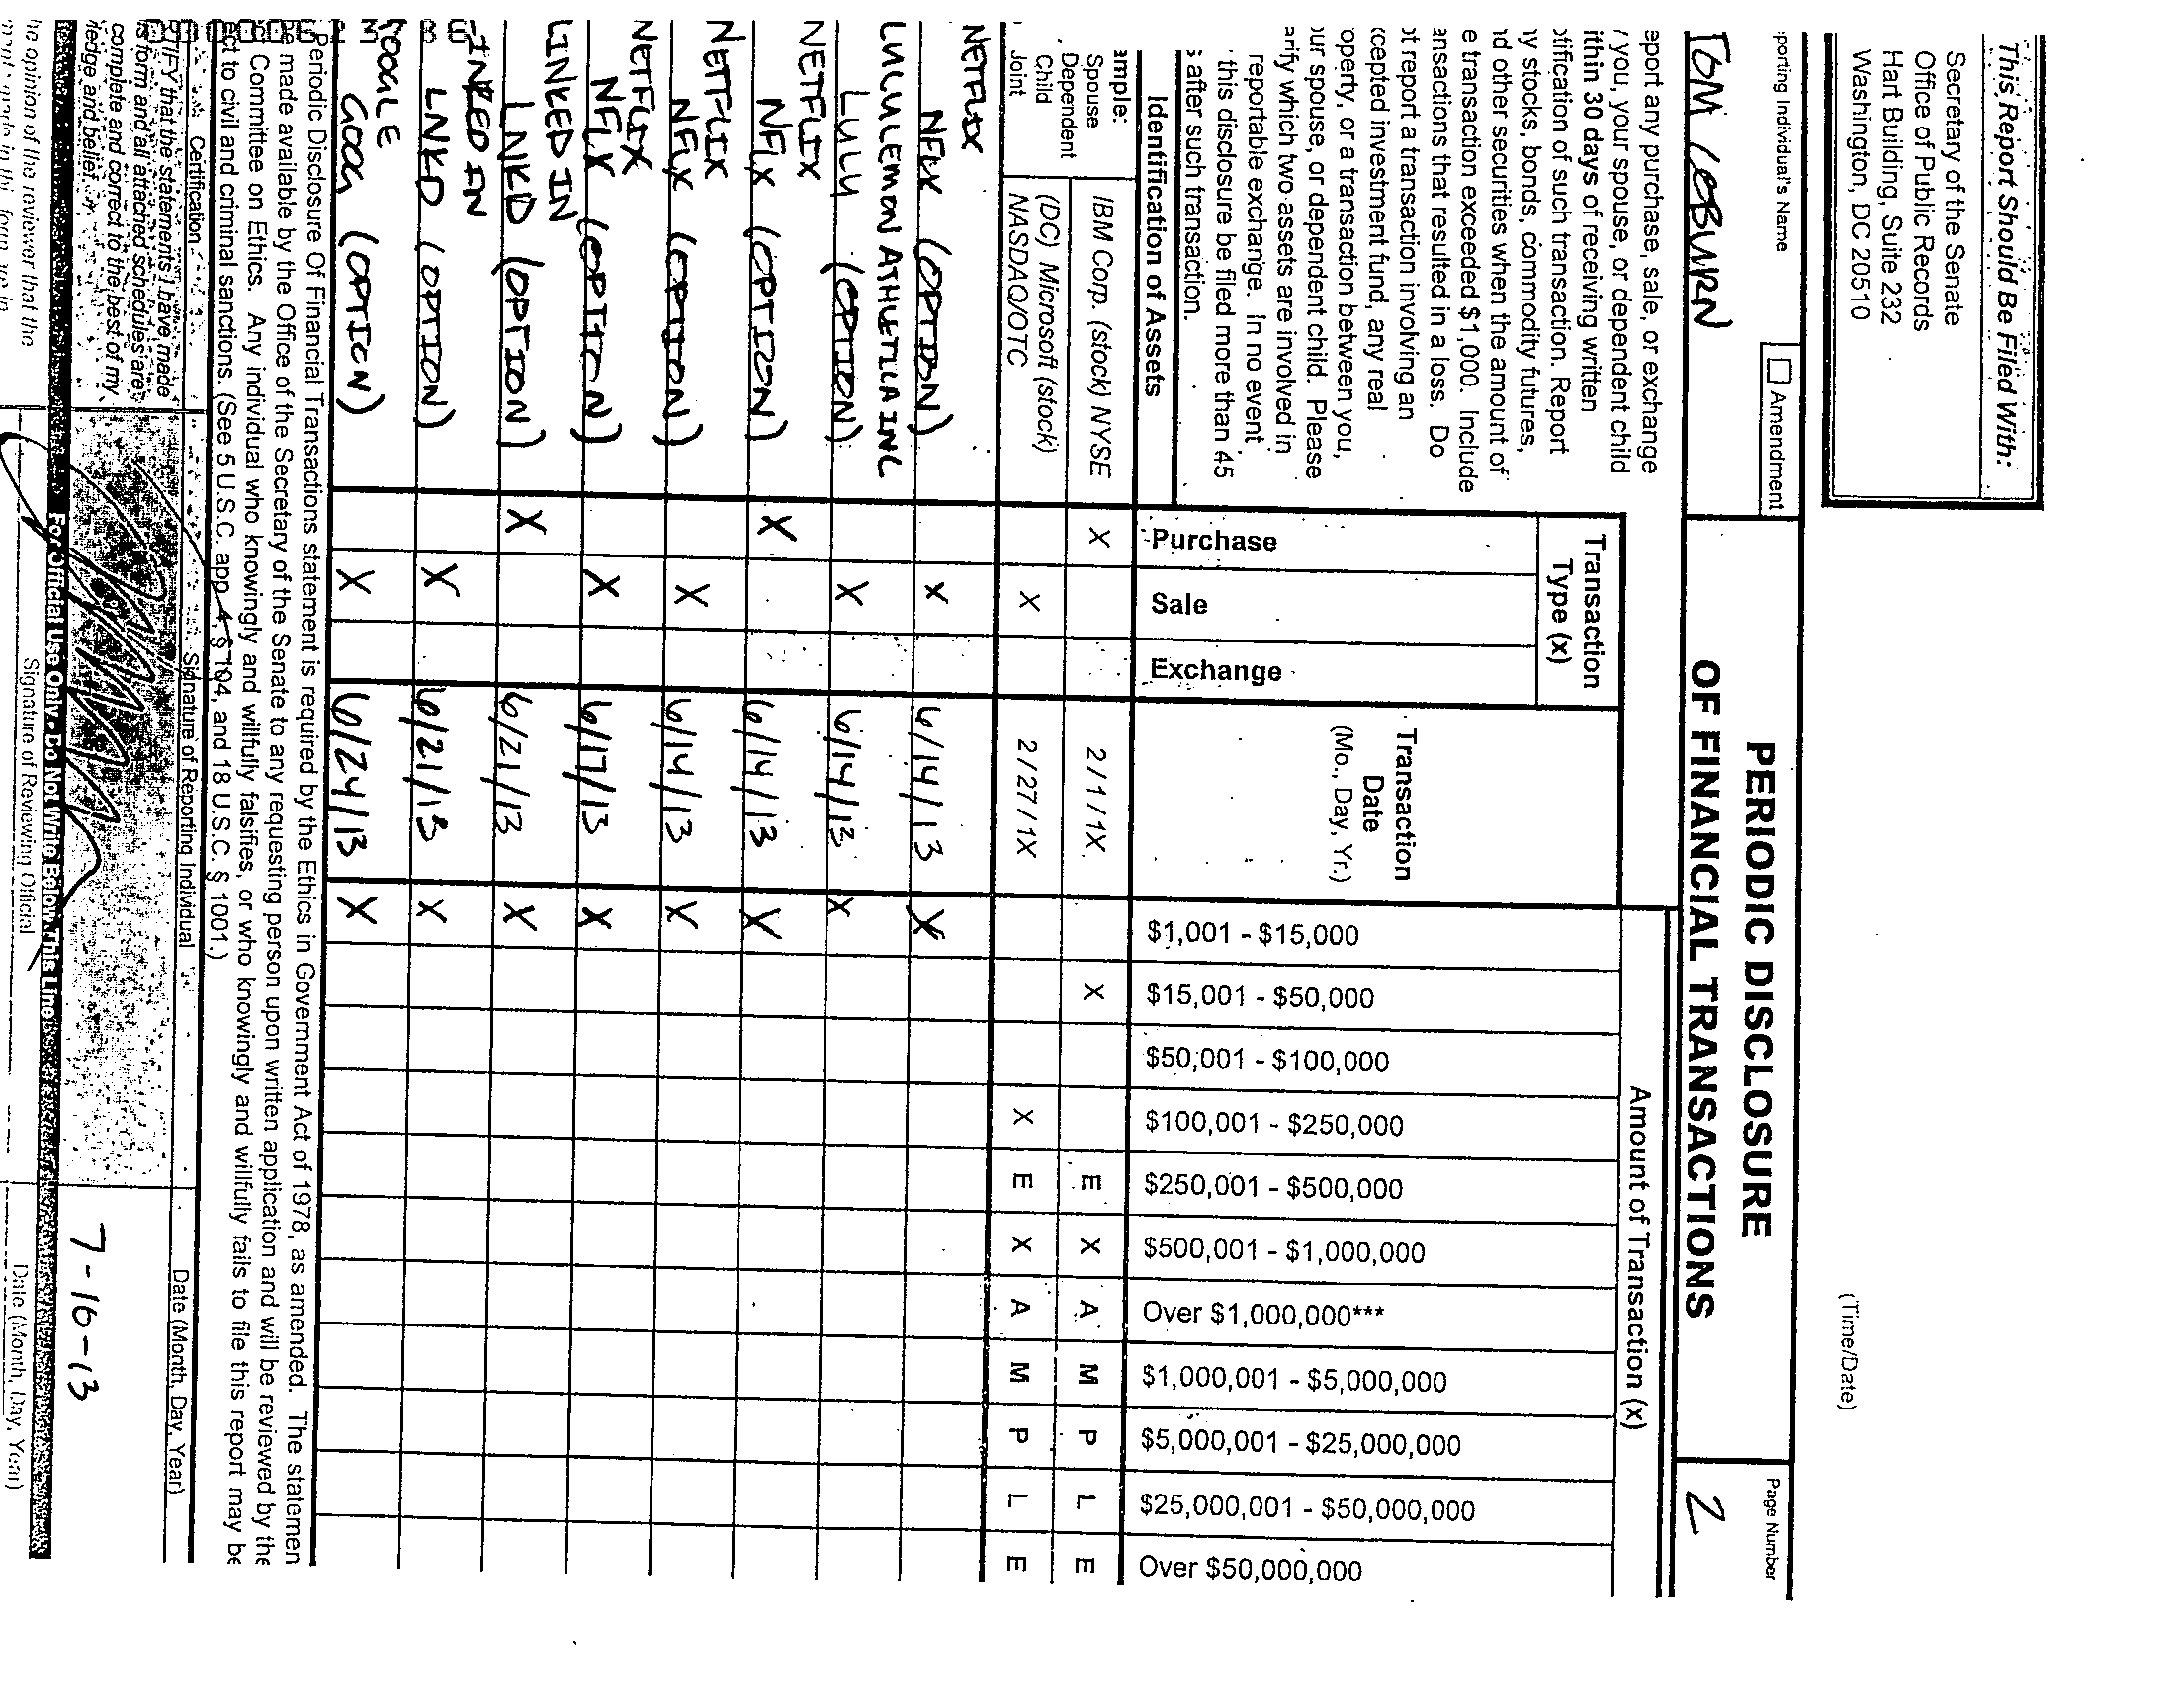 This Report Should Be Filed With:
Secretary of the Senate
Office of Public Records
Hart Building, Suite 232
Washington, DC 20510
(Time/Date)
porting Individual's Name
Amendment
TOM COBURN
PERIODIC DISCLOSURE
OF FINANCIAL TRANSACTIONS
Page Number
2
eport any purchase, sale, or exchange
you, your spouse, or dependent child
ithin 30 days of receiving written
otification of such transaction. Report
ny stocks, bonds, commodity futures,
nd other securities when the amount of
e transaction exceeded $1,000. Include
ansactions that resulted in a loss. Do
ot report a transaction involving an
xcepted investment fund, any real
operty, or a transaction between you,
our spouse, or dependent child. Please
arify which two assets are involved in
reportable exchange. In no event
this disclosure be filed more than 45
s after such transaction.
Identification of Assets
Transaction
Type (x)
Purchase
Sale
Exchange
Transaction
Date
(Mo., Day, Yr.)
Amount of Transaction (x)
$1,001 - $15,000
$15,001 - $50,000
$50,001 - $100,000
$100,001 - $250,000
$250,001 - $500,000
$500,001 - $1,000,000
Over $1,000,000***
$1,000,001 - $5,000,000
$5,000,001 - $25,000,000
$25,000,001 - $50,000,000
Over $50,000,000
ample:
Spouse
Dependent
Child
Joint
IBM Corp. (stock) NYSE X 2/1/1X X E X A M P L E
(DC) Microsoft (stock)
NASDAQ/OTC X 2/27/1X X E X A M P L E
NETFLIX
NFLX (OPTION) X 6/14/13 X
LULULEMON ATHLETICA INC
LULU (OPTION) X 6/14/13 X
NETFLIX
NFLX (OPTION) X 6/14/13 X
NETFLIX
NFLX (OPTION) X 6/14/13 X
NETFLIX
NFLX (OPTION) X 6/17/13 X
LINKED IN
LNKD (OPTION) X 6/21/13 X
LINKED IN
LNKD (OPTION) X 6/21/13 X
GOOGLE
GOOG (OPTION) X 6/24/13 X
Periodic Disclosure Of Financial Transactions statement is required by the Ethics in Government Act of 1978, as amended. The statemen
be made available by the Office of the Secretary of the Senate to any requesting person upon written application and will be reviewed by the
Committee on Ethics. Any individual who knowingly and willfully falsifies, or who knowingly and willfully fails to file this report may be
ect to civil and criminal sanctions. (See 5 U.S.C. app. 4, § 104, and 18 U.S.C. § 1001.)
Certification
Signature of Reporting Individual
Date (Month, Day, Year)
TIFY that the statements I have made
is form and all attached schedules are
complete and correct to the best of my
ledge and belief.
7-16-13
For Official Use Only - Do Not Write Below This Line
he opinion of the reviewer that the
Signature of Reviewing Official
Date (Month, Day, Year)